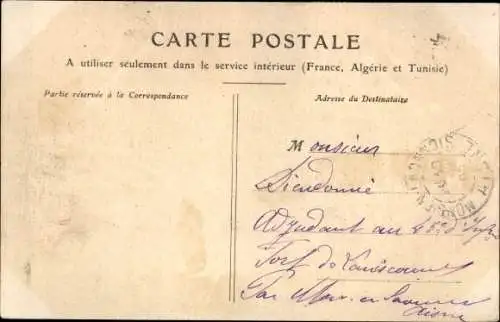 CARTE POSTALE
A utiliser seulement dans le service intérieur (France, Algérie et Tunisie)
Partie réservée à la Correspondance
Adresse du Destinataire
Monsieur
Dieudonné
Adjudant au 45e d'Inf
Fort de
Par en
Aisne